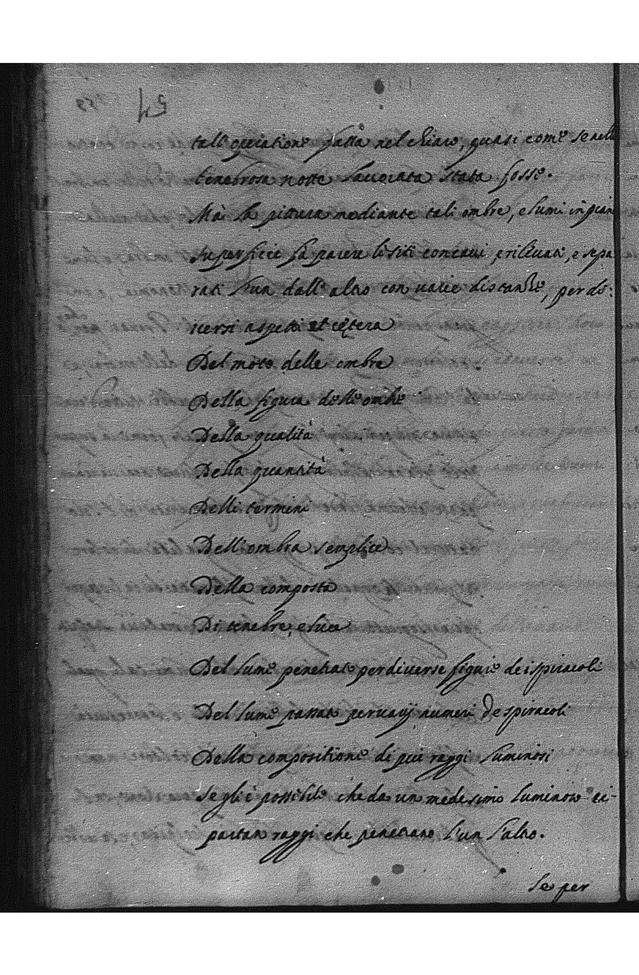 54
tall' operatione fatta nel chiaro, quasi come se nella
tenebrosa notte lavorata stata fosse.
Mà la pittura mediante tali ombre, e lumi in pian
superficie fà parere li siti concavi e rilevati, e sepa
rati l'un dall' altro con varie distanze, per di:
versi aspetti et cętera
Del moto delle ombre
Della figura delle ombre
Della qualità
Della quantità
Delli termini
Dell'ombra semplice
Della composta
Di tenebre, e luce
Del lume penetrato per diverse figure de i spiracoli
Del lume passato per varij numeri de spiracoli
Della compositione di più raggi luminosi
Se gli è possibile che da un medesimo luminoso si
partan raggi che penetrano l'un l'altro.
Se per